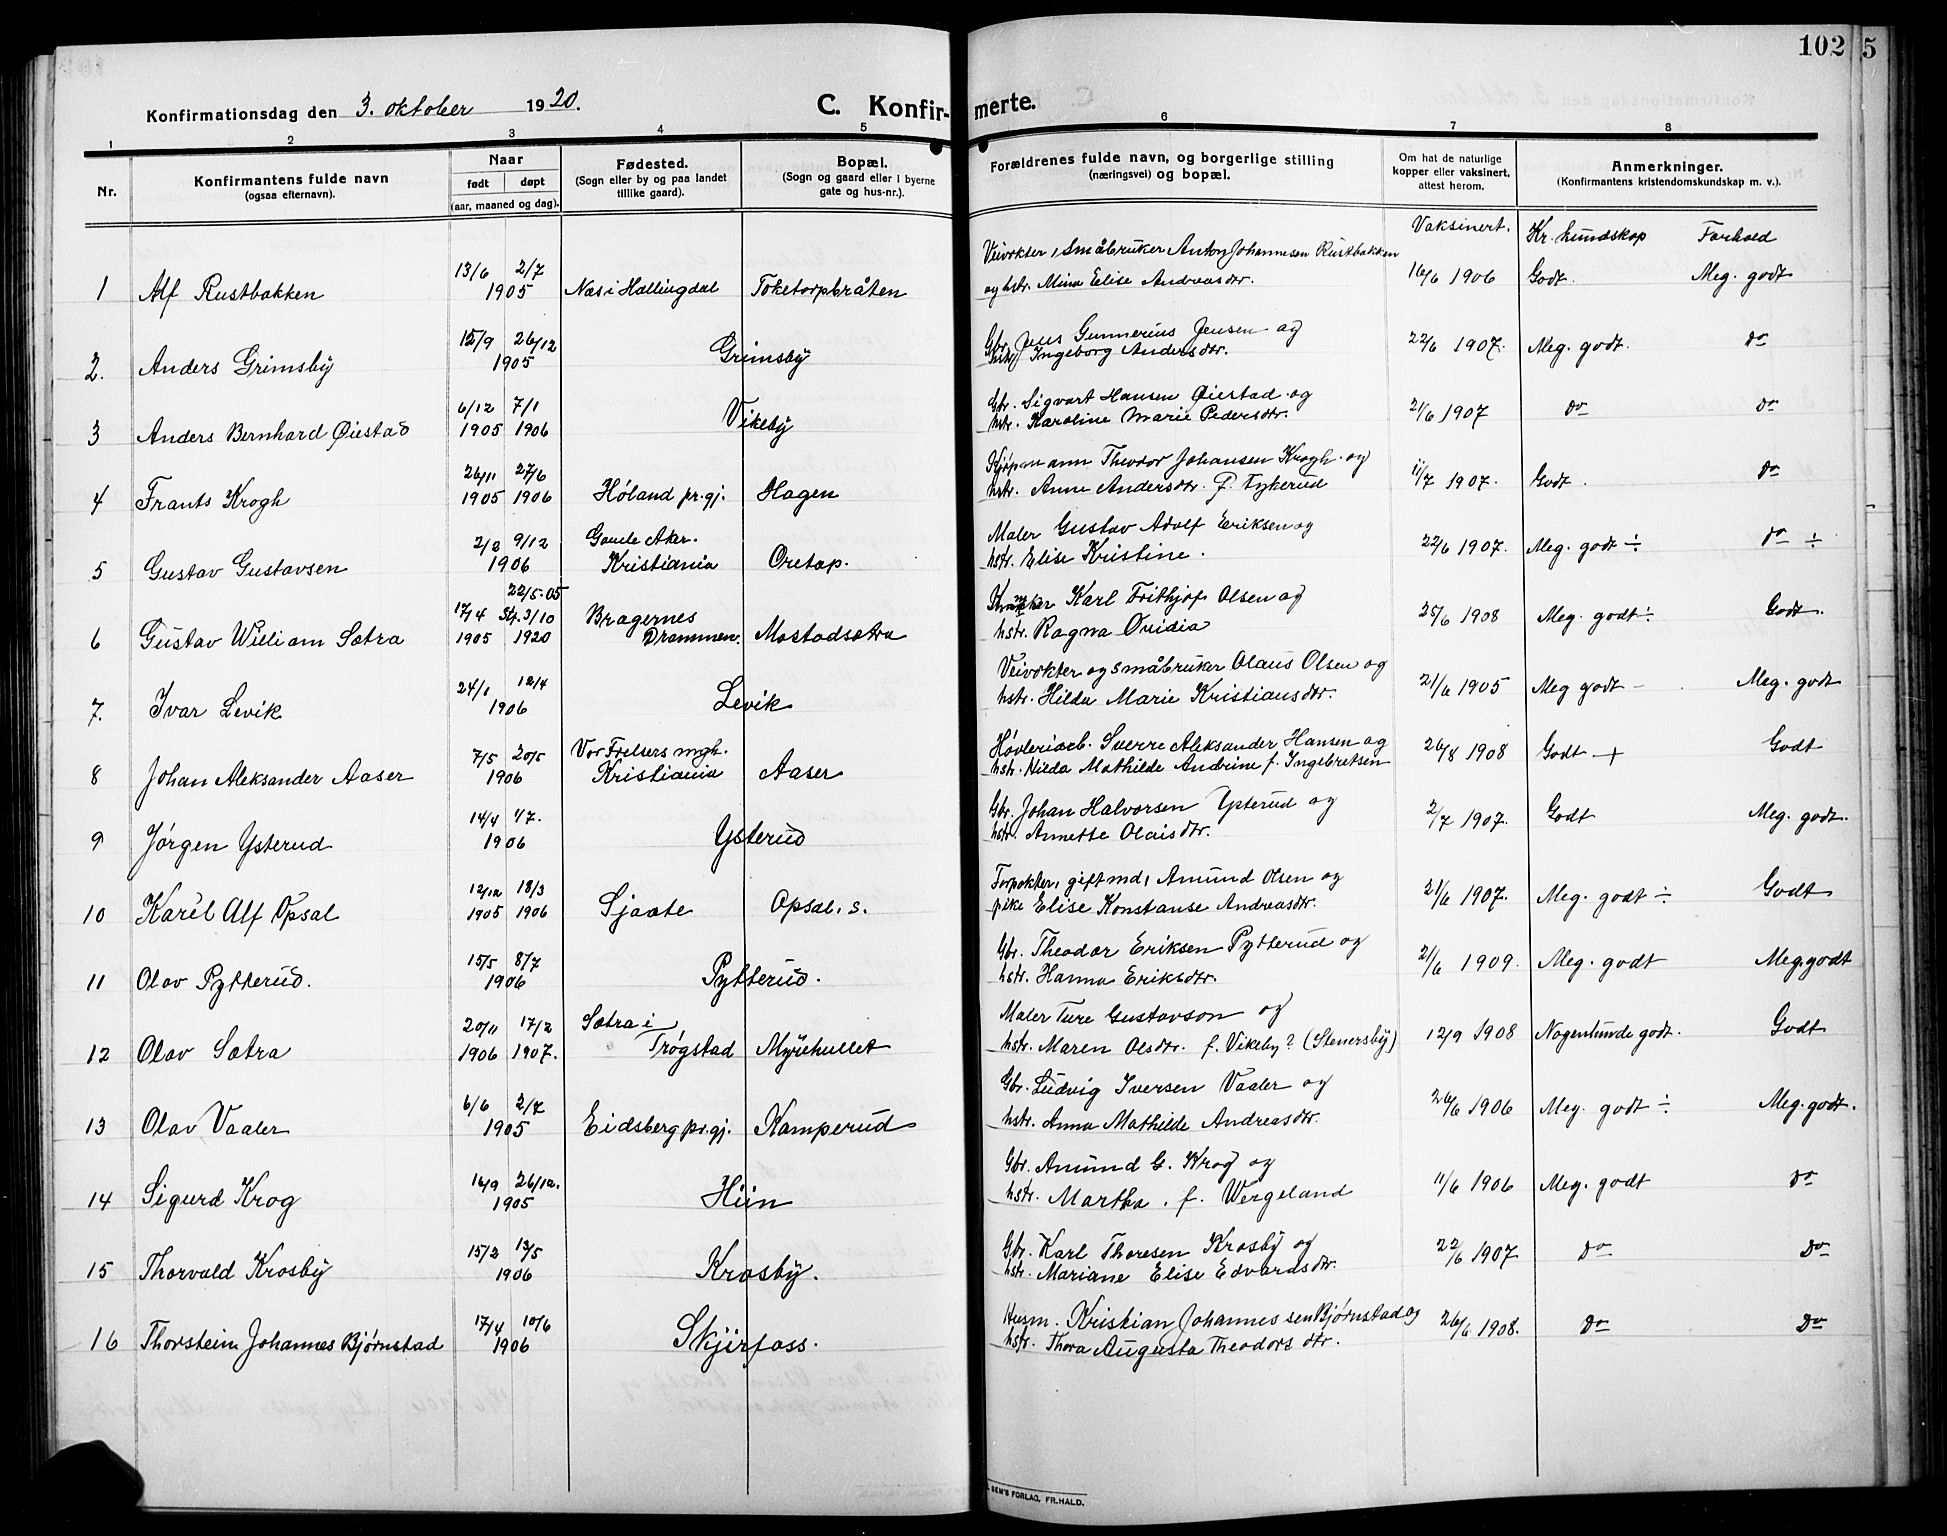 102 5
Konfirmationsdag den 3. oktober 1920.
C. Konfir- merte.
1 2 3 4 5 6 7 8
Nr.
Konfirmantens fulde navn
(ogsaa efternavn).
Naar
født døpt
(aar, maaned og dag).
Fødested.
(Sogn eller by og paa landet
tillike gaard).
Bopæl.
(Sogn og gaard eller i byerne
gate og hus-nr.).
Forældrenes fulde navn, og borgerlige stilling
(næringsvei) og bopæl.
Om hat de naturlige
kopper eller vaksinert,
attest herom.
Anmerkninger.
(Konfirmantens kristendomskundskap m. v.).
Vaksinert. Kr. kundskap Forhold
Veivokter, småbruker Anton Johannesen Rustbakken
13/6 2/7
1 Alf Rustbakken 1905 Næs i Hallingdal Toketorpbråten og hstr. Mina Elise Andreasdtr. 16/6 1906 Godt. Meg. godt
15/9 26/12 Gbr. Jens Gunnerius Jensen og
2. Anders Grimsby 1905 Grimsby hstr. Ingeborg Andersdtr. 22/6 1907. Meg. godt. do
6/12 7/1 Gbr. Sigvart Hansen Øiestad og
3 Anders Bernhard Øiestad 1905 1906 Vikeby hstr. Karoline Marie Pedersdtr. 21/6 1907 do do
26/11 27/6 Kjøpmann Theodor Johansen Krogh og
4 Frants Krogh 1905 1906 Høland pr.gj. Hagen hstr. Anne Andersdtr. f. Tykerud 11/7 1907. Godt. do
2/2 9/12 Gamle Aker. Maler Gustav Adolf Eriksen og
5 Gustav Gustavsen 1906 Kristiania Oretop. hstr. Elise Kristine. 22/6 1907. Meg. godt ÷ do ÷
22/5-05
17/4 Stf. 3/10 Bragernes Karl Frithjof Olsen og
6 Gustav William Sætra 1905 1920 Drammen. Mostadsætra hstr. Ragna Ovidia 25/6 1908 Meg. godt ÷ Godt.
24/1 12/4 Veivokter og småbruker Olaus Olsen og
7. Ivar Levik 1906 Levik hstr. Hilda Marie Kristiansdtr. 21/6 1905 Meg godt - Meg. godt
7/5 20/5 Vor Frelsers mgh. Høvleriarb. Sverre Aleksander Hansen og
8 Johan Aleksander Aaser 1906 Kristiania Aaser hstr. Hilda Mathilde Andrine f. Ingebretsen 26/8 1908 Godt + Godt
14/4 1/7. Gbr. Johan Halvorsen Ysterud og
9 Jørgen Ysterud 1906 Ysterud hstr. Annette Olaisdtr. 2/7 1907. Godt Meg. godt.
12/12 18/3 Forpakter, gift md, Amund Olsen og
10 Karel Alf Opsal 1905 1906 Sjaate Opsal. s. pike Elise Konstanse Andreasdtr. 21/6 1907. Meg. godt ÷ Godt
15/5 8/7 Gbr. Theodor Eriksen Pytterud og
11 Olav Pytterud. 1906 Pytterud. hstr. Hanna Eriksdtr. 21/6 1909. Meg. godt Meg. godt
20/11 17/2 Sætra i Maler Ture Gustavson og
12 Olav Sætra 1906 1907. Trøgstad Myrehullet hstr. Maren Olsdtr. f. Vikeby? (Stenersby) 12/9 1908 Nogenlunde godt. Godt
6/6 2/7 Gbr. Ludvig Iversen Vaaler og
13 Olav Vaaler 1905 Eidsberg pr.gj. Kamperud hstr. Anna Mathilde Andreasdtr. 26/6 1906 Meg. godt ÷ Meg. godt.
16/9 26/12. Gbr. Amund G. Krog og
14 Sigurd Krog 1905 Hiin hstr. Martha. f. Wergeland 11/6 1906 Meg. godt do
15/2 13/5 Gbr. Karl Thoresen Krosby og
15 Thorvald Krosby 1906 Krosby. hstr. Mariane Elise Edvardsdtr. 22/6 1907 do do
17/4 10/6 Husm. Kristian Johannessen Bjørnstad og
16 Thorstein Johannes Bjørnstad 1906 Skjirfoss. hstr. Thora Augusta Theodorsdtr. 26/6 1908. do do
SEM'S FORLAG, FR.HALD.